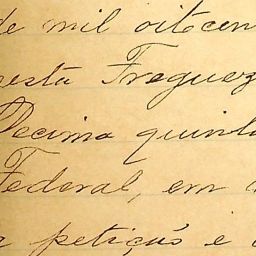 de mil oitocen
nesta Freguez
Decima quinta
Federal, em
a petição e